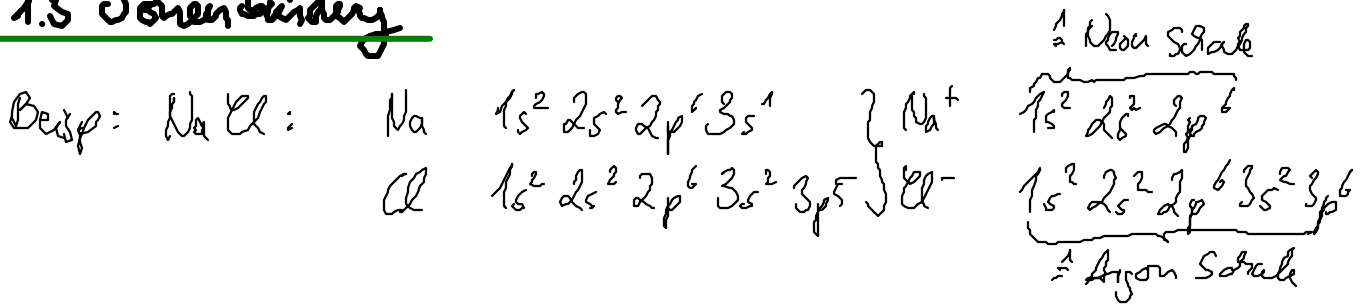 1.3 Ionenbindung
≙ Neon Schale
Beisp: NaCl: Na 1s² 2s² 2p⁶ 3s¹ } Na⁺ 1s² 2s² 2p⁶
Cl 1s² 2s² 2p⁶ 3s² 3p⁵ } Cl⁻ 1s² 2s² 2p⁶ 3s² 3p⁶
≙ Argon Schale